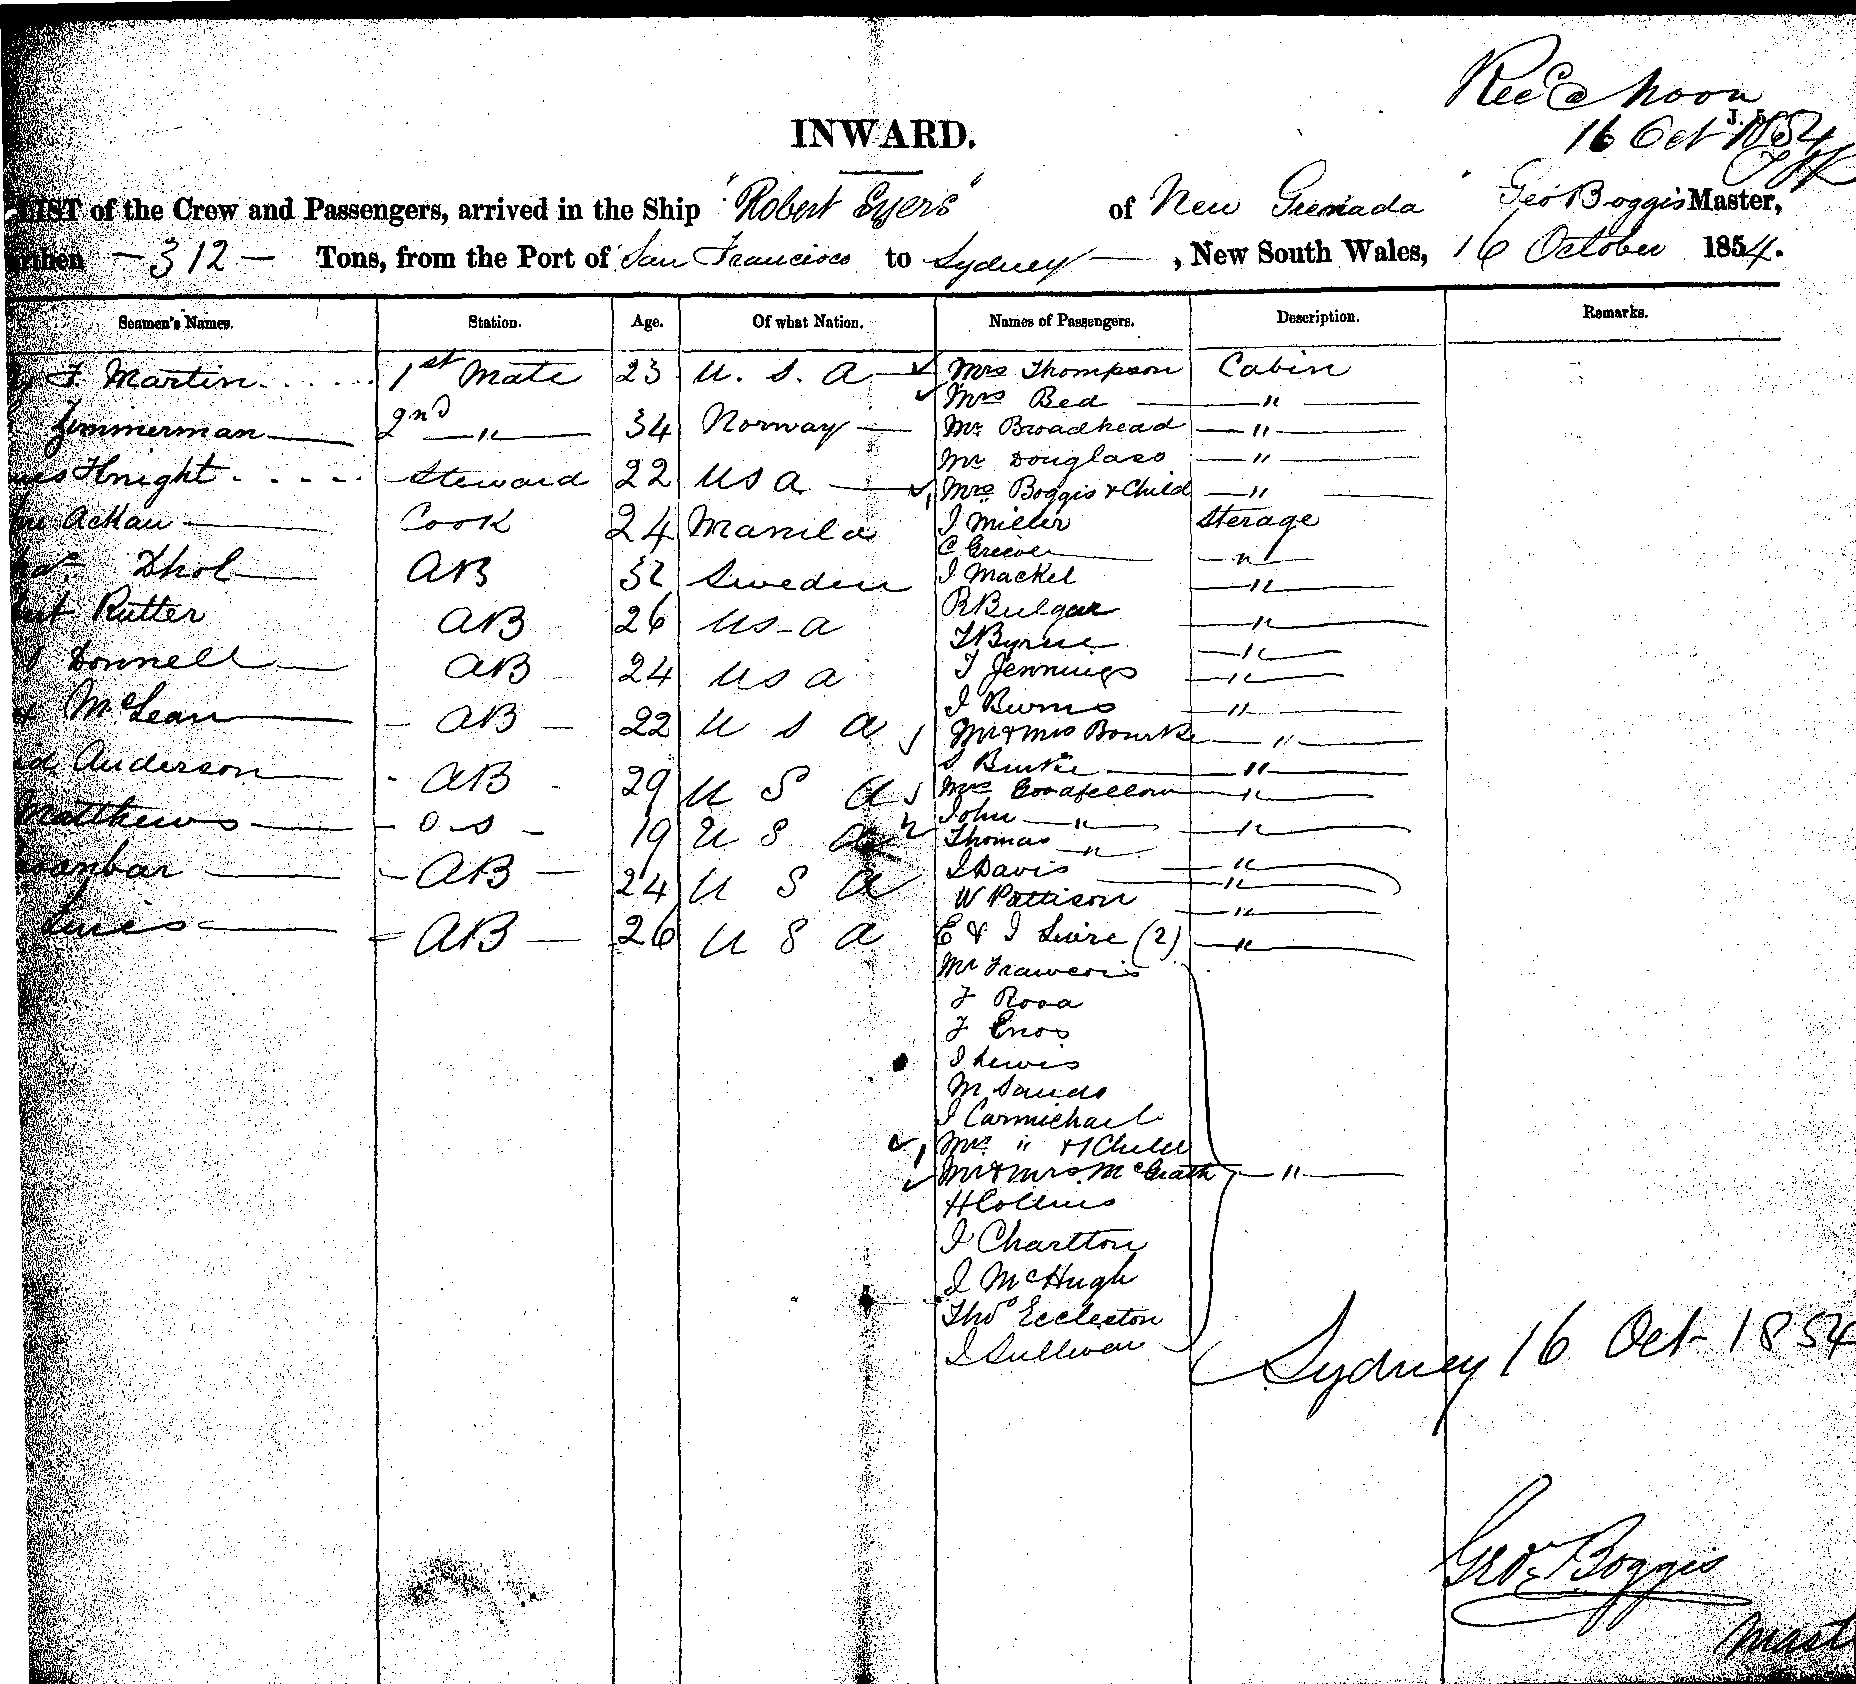 Recd Noon
16 Oct 1854
INWARD.
LIST of the Crew and Passengers, arrived in the Ship "Robert Syers" of New Grenada Geo Boggis Master,
Burthen - 312 - Tons, from the Port of San Francisco to Sydney, New South Wales, 16 October 1854.
Seamen's Names. Station. Age. Of what Nation. Names of Passengers. Description. Remarks.
F. Martin 1st Mate 23 U.S.A Mrs Thompson Cabin
Mrs Bed "
Zimmerman 2nd " 34 Norway Mr Broadhead "
Mr Douglass "
Knight Steward 22 USA Mrs Boggis & Child "
Ackau Cook 24 Manila J Miller Sterage
C "
Dhol AB 32 Sweden J Mackel "
Rutter AB 26 US-A R Bulgar "
T Byrne "
Donnell AB 24 USA T Jennings "
J Burns "
McLean AB 22 U S A Mr & Mrs Bourke "
J Burke "
Anderson AB 29 U S A Mrs Goodfellow "
John " "
Matthews O-S 19 U S A Thomas " "
J Davis "
AB 24 U S A W Pattison "
AB 26 U S A E & J (2) "
Mr
F Rosa
F Enos
J Lewis
M Sands
J Carmichael
Mrs " & 1 Child
Mr & Mrs McGrath "
H Collins
J Charlton
J McHugh
Thos Eccleston
J Sullivan
Sydney 16 Oct 1854
Geo Boggis
Mast